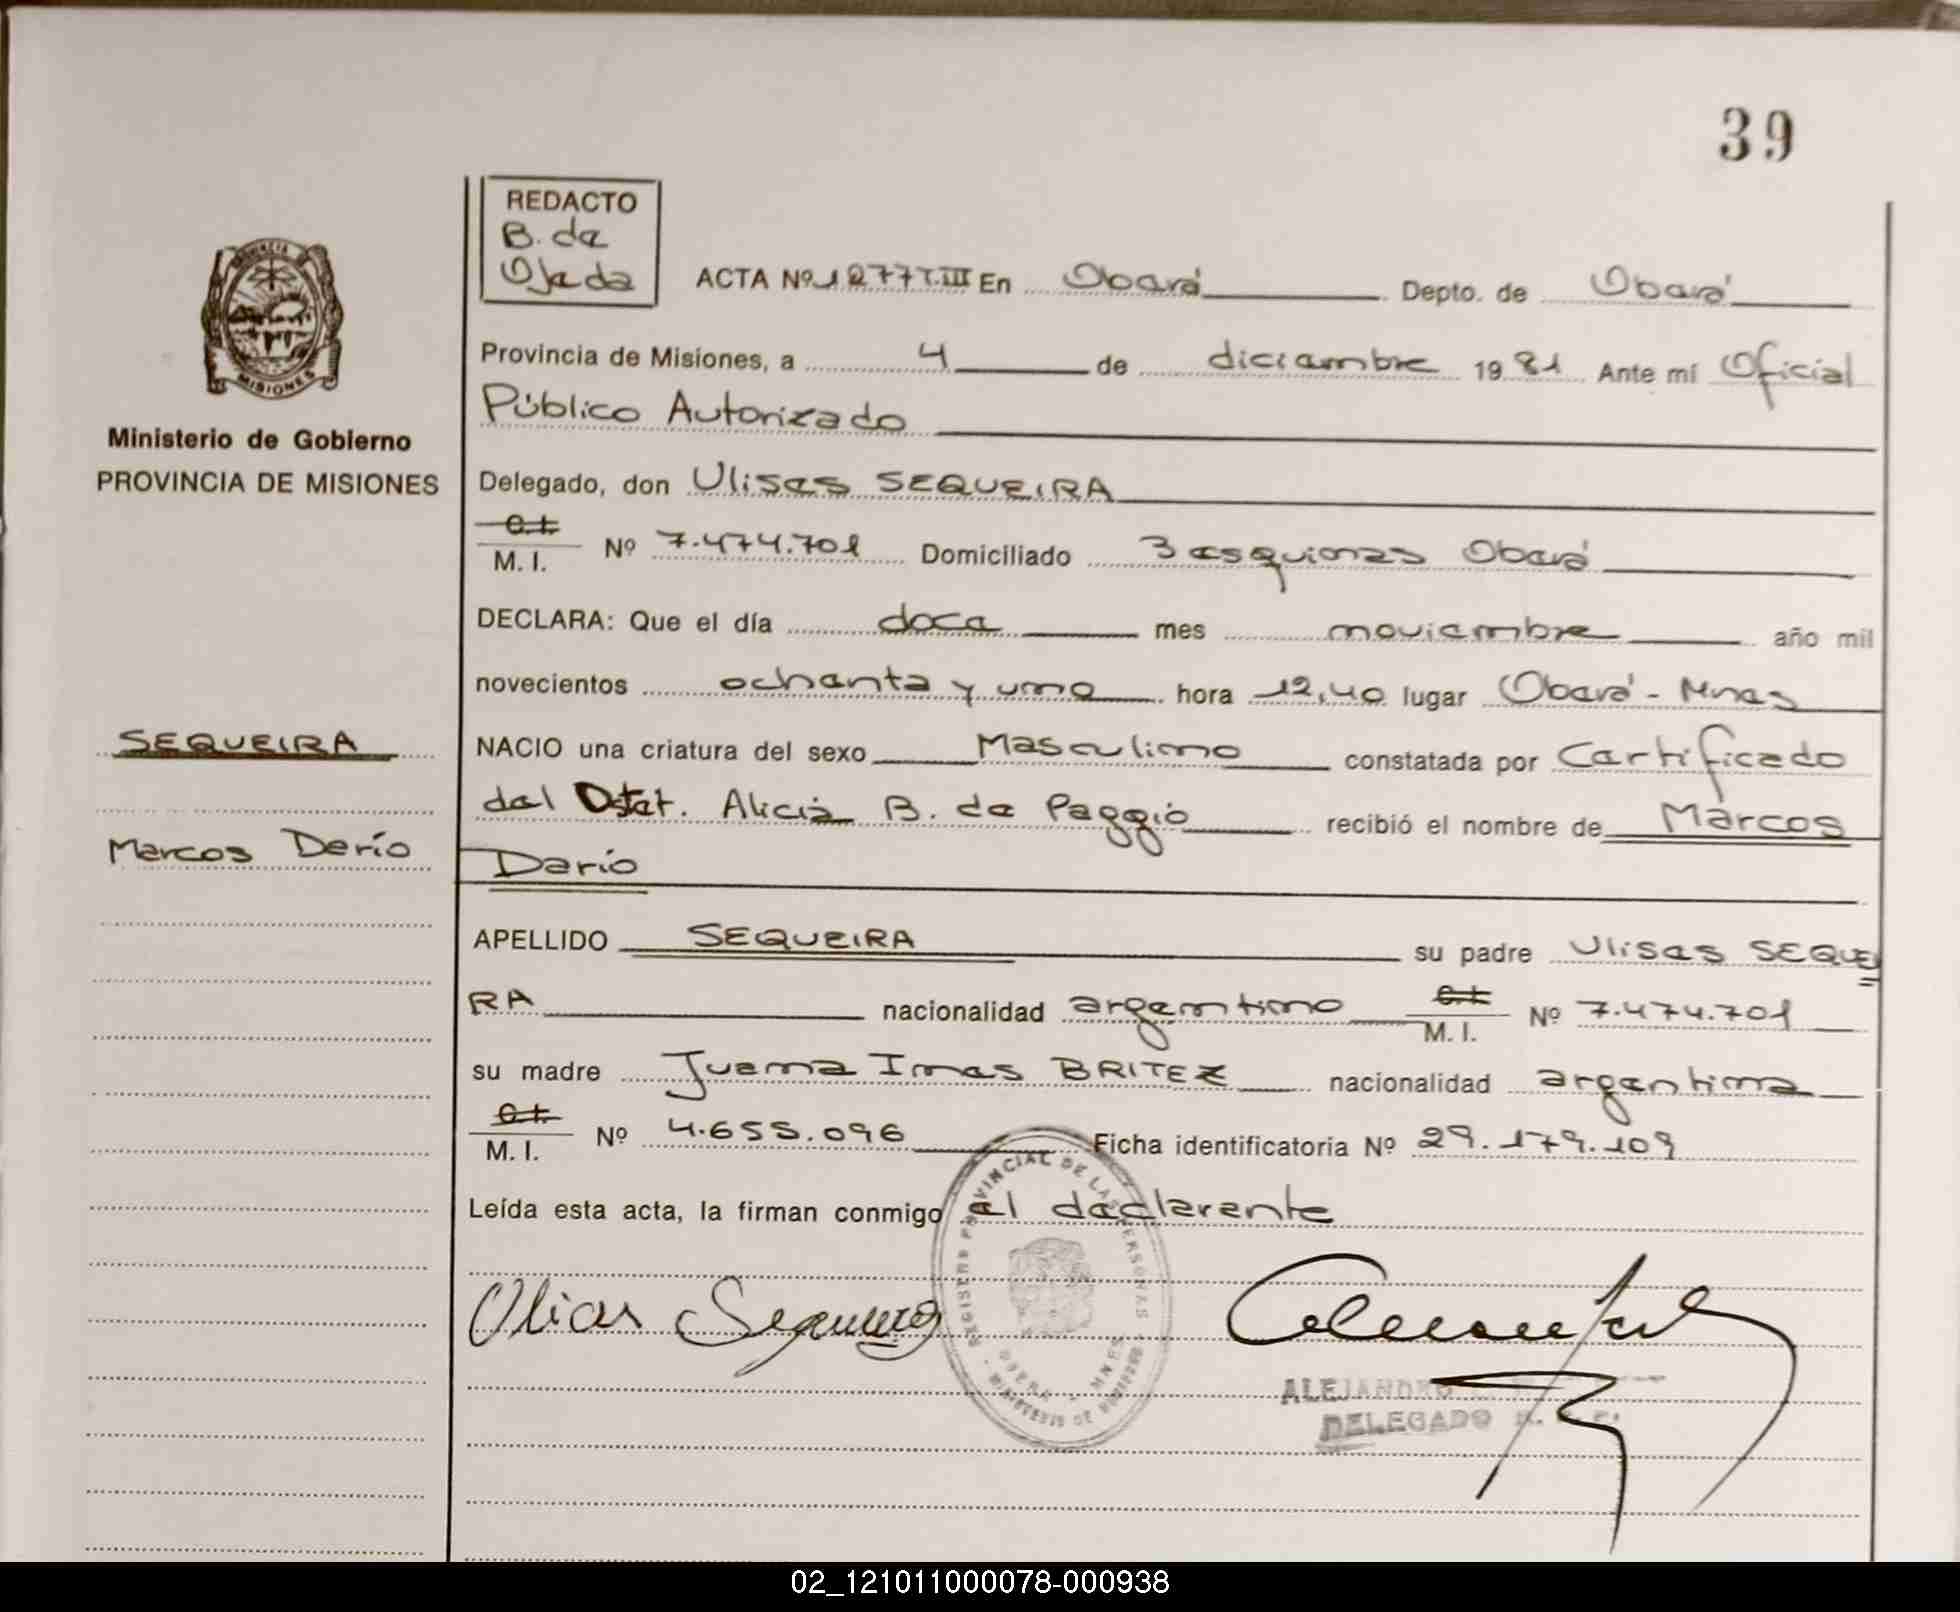 39
REDACTO
B. de
Ojeda
ACTA Nº 1277 T.III En Oberá Depto. de Oberá
Provincia de Misiones, a 4 de diciembre 1981 Ante mí Oficial
Público Autorizado
Ministerio de Gobierno
PROVINCIA DE MISIONES
Delegado, don Ulises SEQUEIRA
C.I.
M. I. Nº 7.474.701 Domiciliado 3 esquinas Oberá
DECLARA: Que el día doce mes noviembre año mil
novecientos ochenta y uno hora 12,40 lugar Oberá - Mnes
SEQUEIRA
NACIO una criatura del sexo Masculino constatada por Certificado
del Ostet. Alicia B. de Paggio recibió el nombre de Marcos
Marcos Derío
Darío
APELLIDO SEQUEIRA su padre Ulises SEQUEI
RA nacionalidad argentino C.I.
M. I. Nº 7.474.701
su madre Juana Ines BRITEZ nacionalidad argentina
C.I.
M. I. Nº 4.655.096 Ficha identificatoria Nº 29.179.109
Leída esta acta, la firman conmigo el declarente
REGISTRO PROVINCIAL DE LAS PERSONAS
OBERA - MNES
MINISTERIO DE GOBIERNO
Ulises Sequeira
ALEJANDRO
DELEGADO
PROVINCIA
MISIONES
02_121011000078-000938